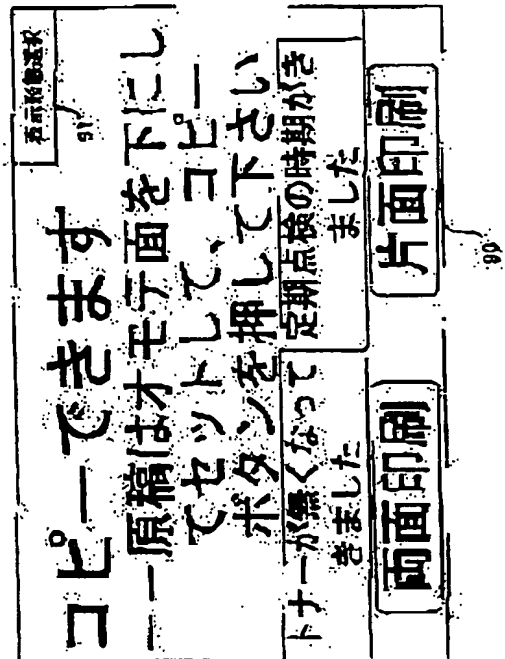 表示形態選択
91
コピーできます
原稿はオモテ面を下にし
てセットして、コピー
ボタンを押して下さい
トナーが無くなって
きました
定期点検の時期がき
ました
両面印刷
片面印刷
90